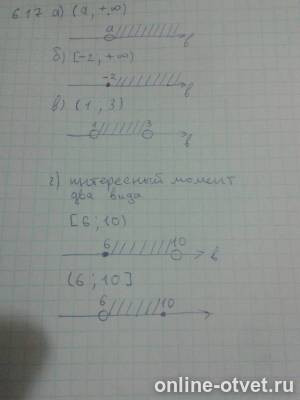 617 а) (а, +∞)
а
б
б) [-2, +∞)
-2
б
в) (1, 3)
1 3
б
г) интересный момент
два вида
[6; 10)
6 10
б
(6; 10]
6 10
online-otvet.ru